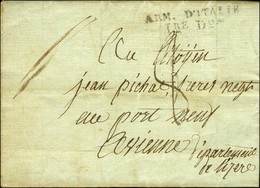 ARM. D'ITALIE
1RE Don
Au Citoyen
jean pichat freres negt
au port neuf
a vienne Departement
de l'izere